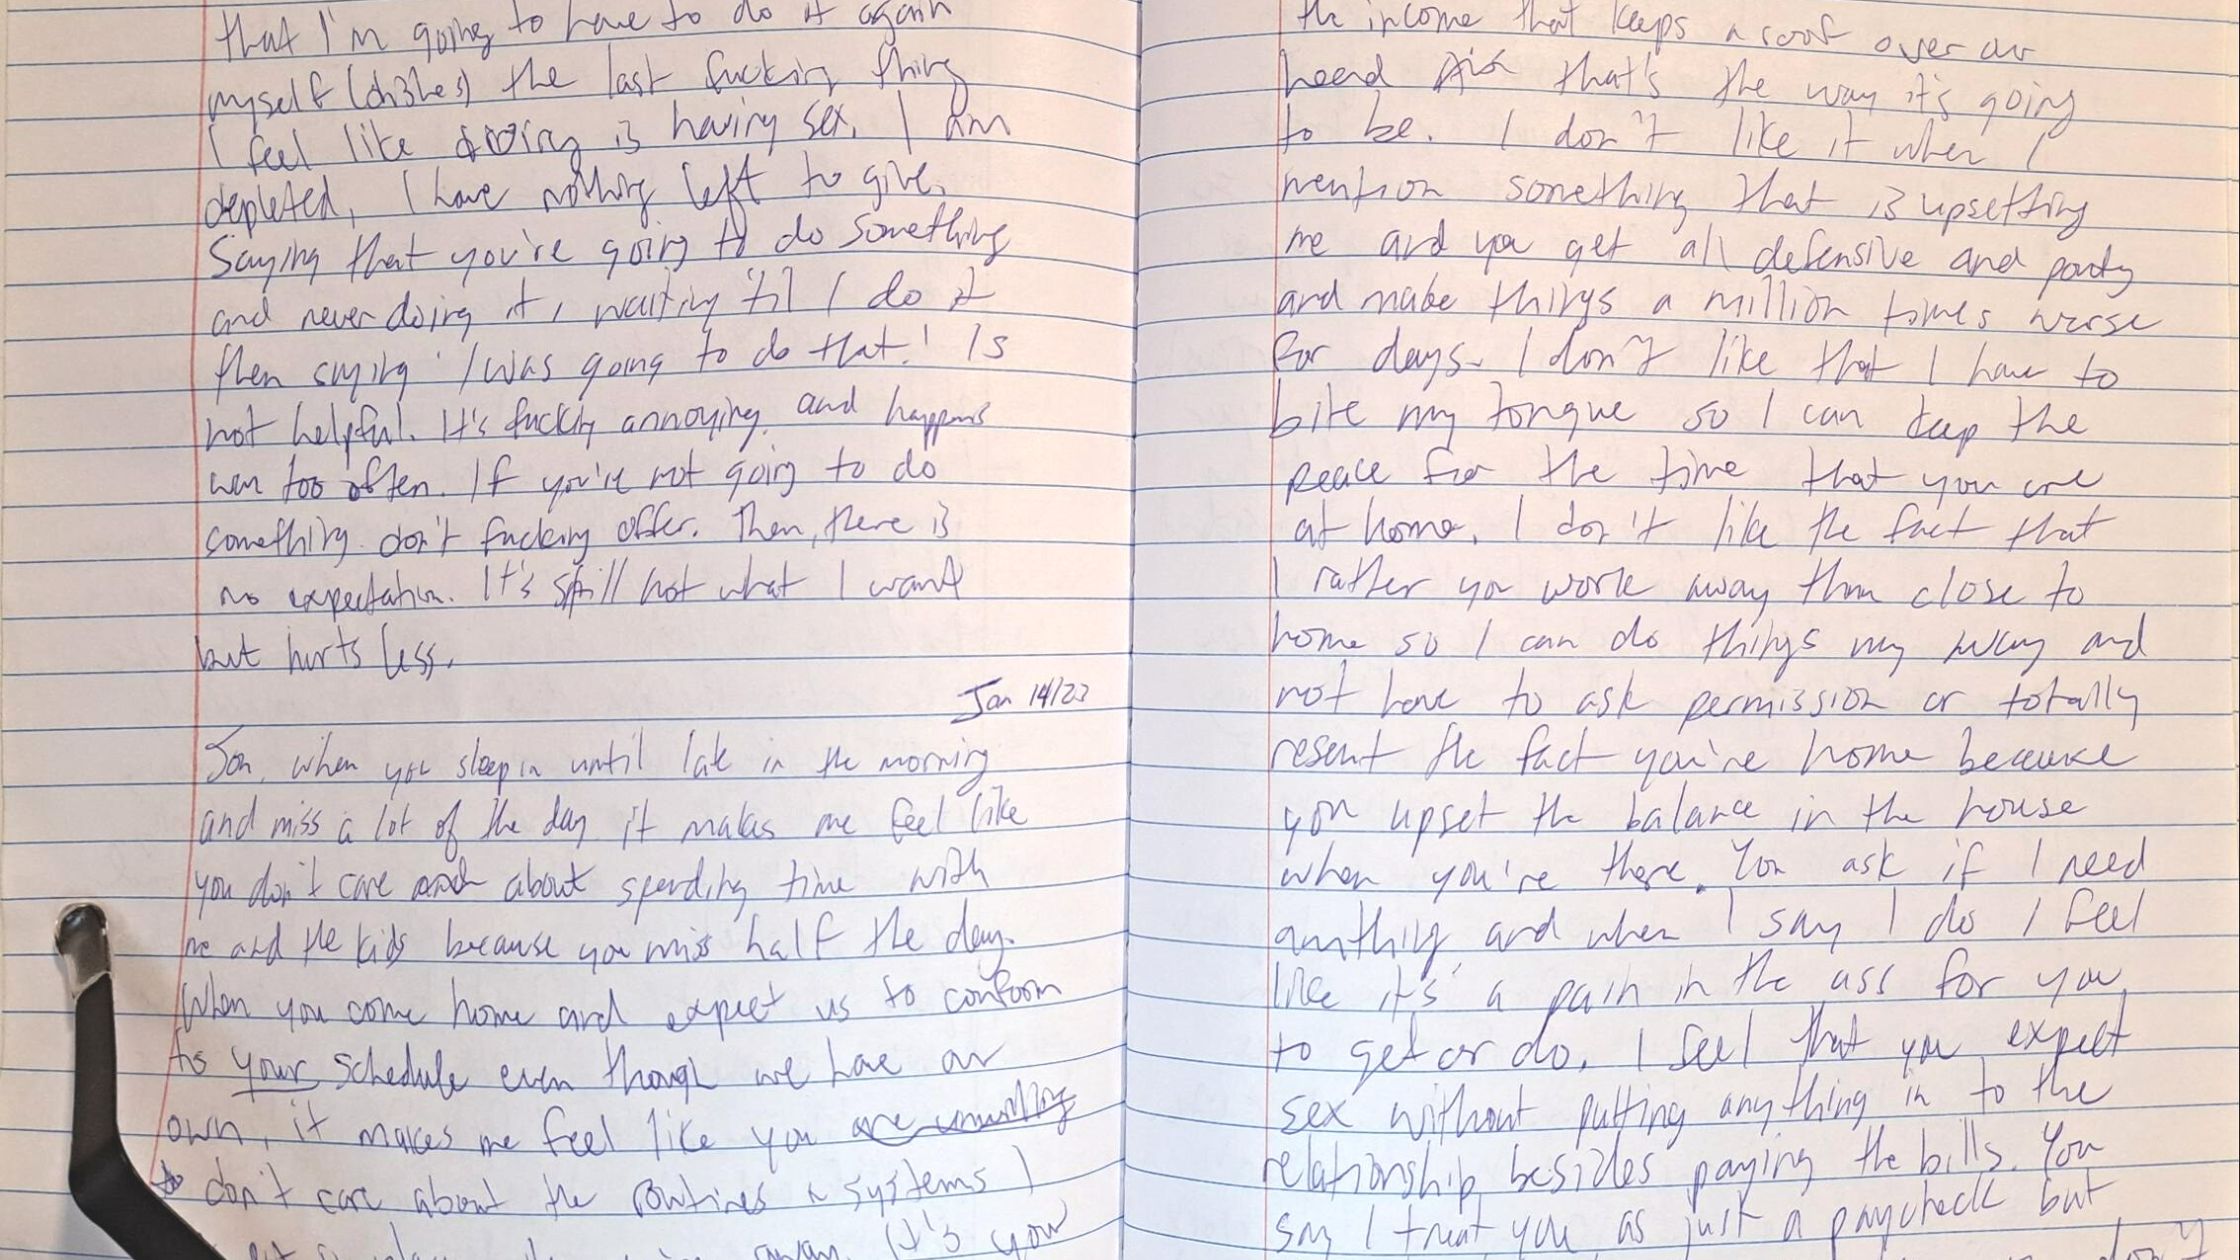 that I'm going to have to do it again
myself (dishes) the last fucking thing
I feel like doing is having sex. I am
depleted, I have nothing left to give.
Saying that you're going to do something
and never doing it, waiting 'til I do it
then saying 'I was going to do that.' Is
not helpful. It's fucking annoying, and happens
way too often. If you're not going to do
something don't fucking offer. Then, there is
no expectation. It's still not what I want
but hurts less.
Jan 14/23
Jon, when you sleep in until late in the morning
and miss a lot of the day it makes me feel like
you don't care about spending time with
me and the kids because you miss half the day.
When you come home and expect us to conform
to your schedule even though we have our
own, it makes me feel like you are unwilling
to don't care about the routines & systems I
It's you
the income that keeps a roof over our
head that's the way it's going
to be. I don't like it when I
mention something that is upsetting
me and you get all defensive and pouty
and make things a million times worse
for days. I don't like that I have to
bite my tongue so I can keep the
peace for the time that you are
at home. I don't like the fact that
I rather you work away than close to
home so I can do things my way and
not have to ask permission or totally
resent the fact you're home because
you upset the balance in the house
when you're there. You ask if I need
anything and when I say I do I feel
like it's a pain in the ass for you
to get or do. I feel that you expect
sex without putting anything in to the
relationship besides paying the bills. You
say I treat you as just a paycheck but